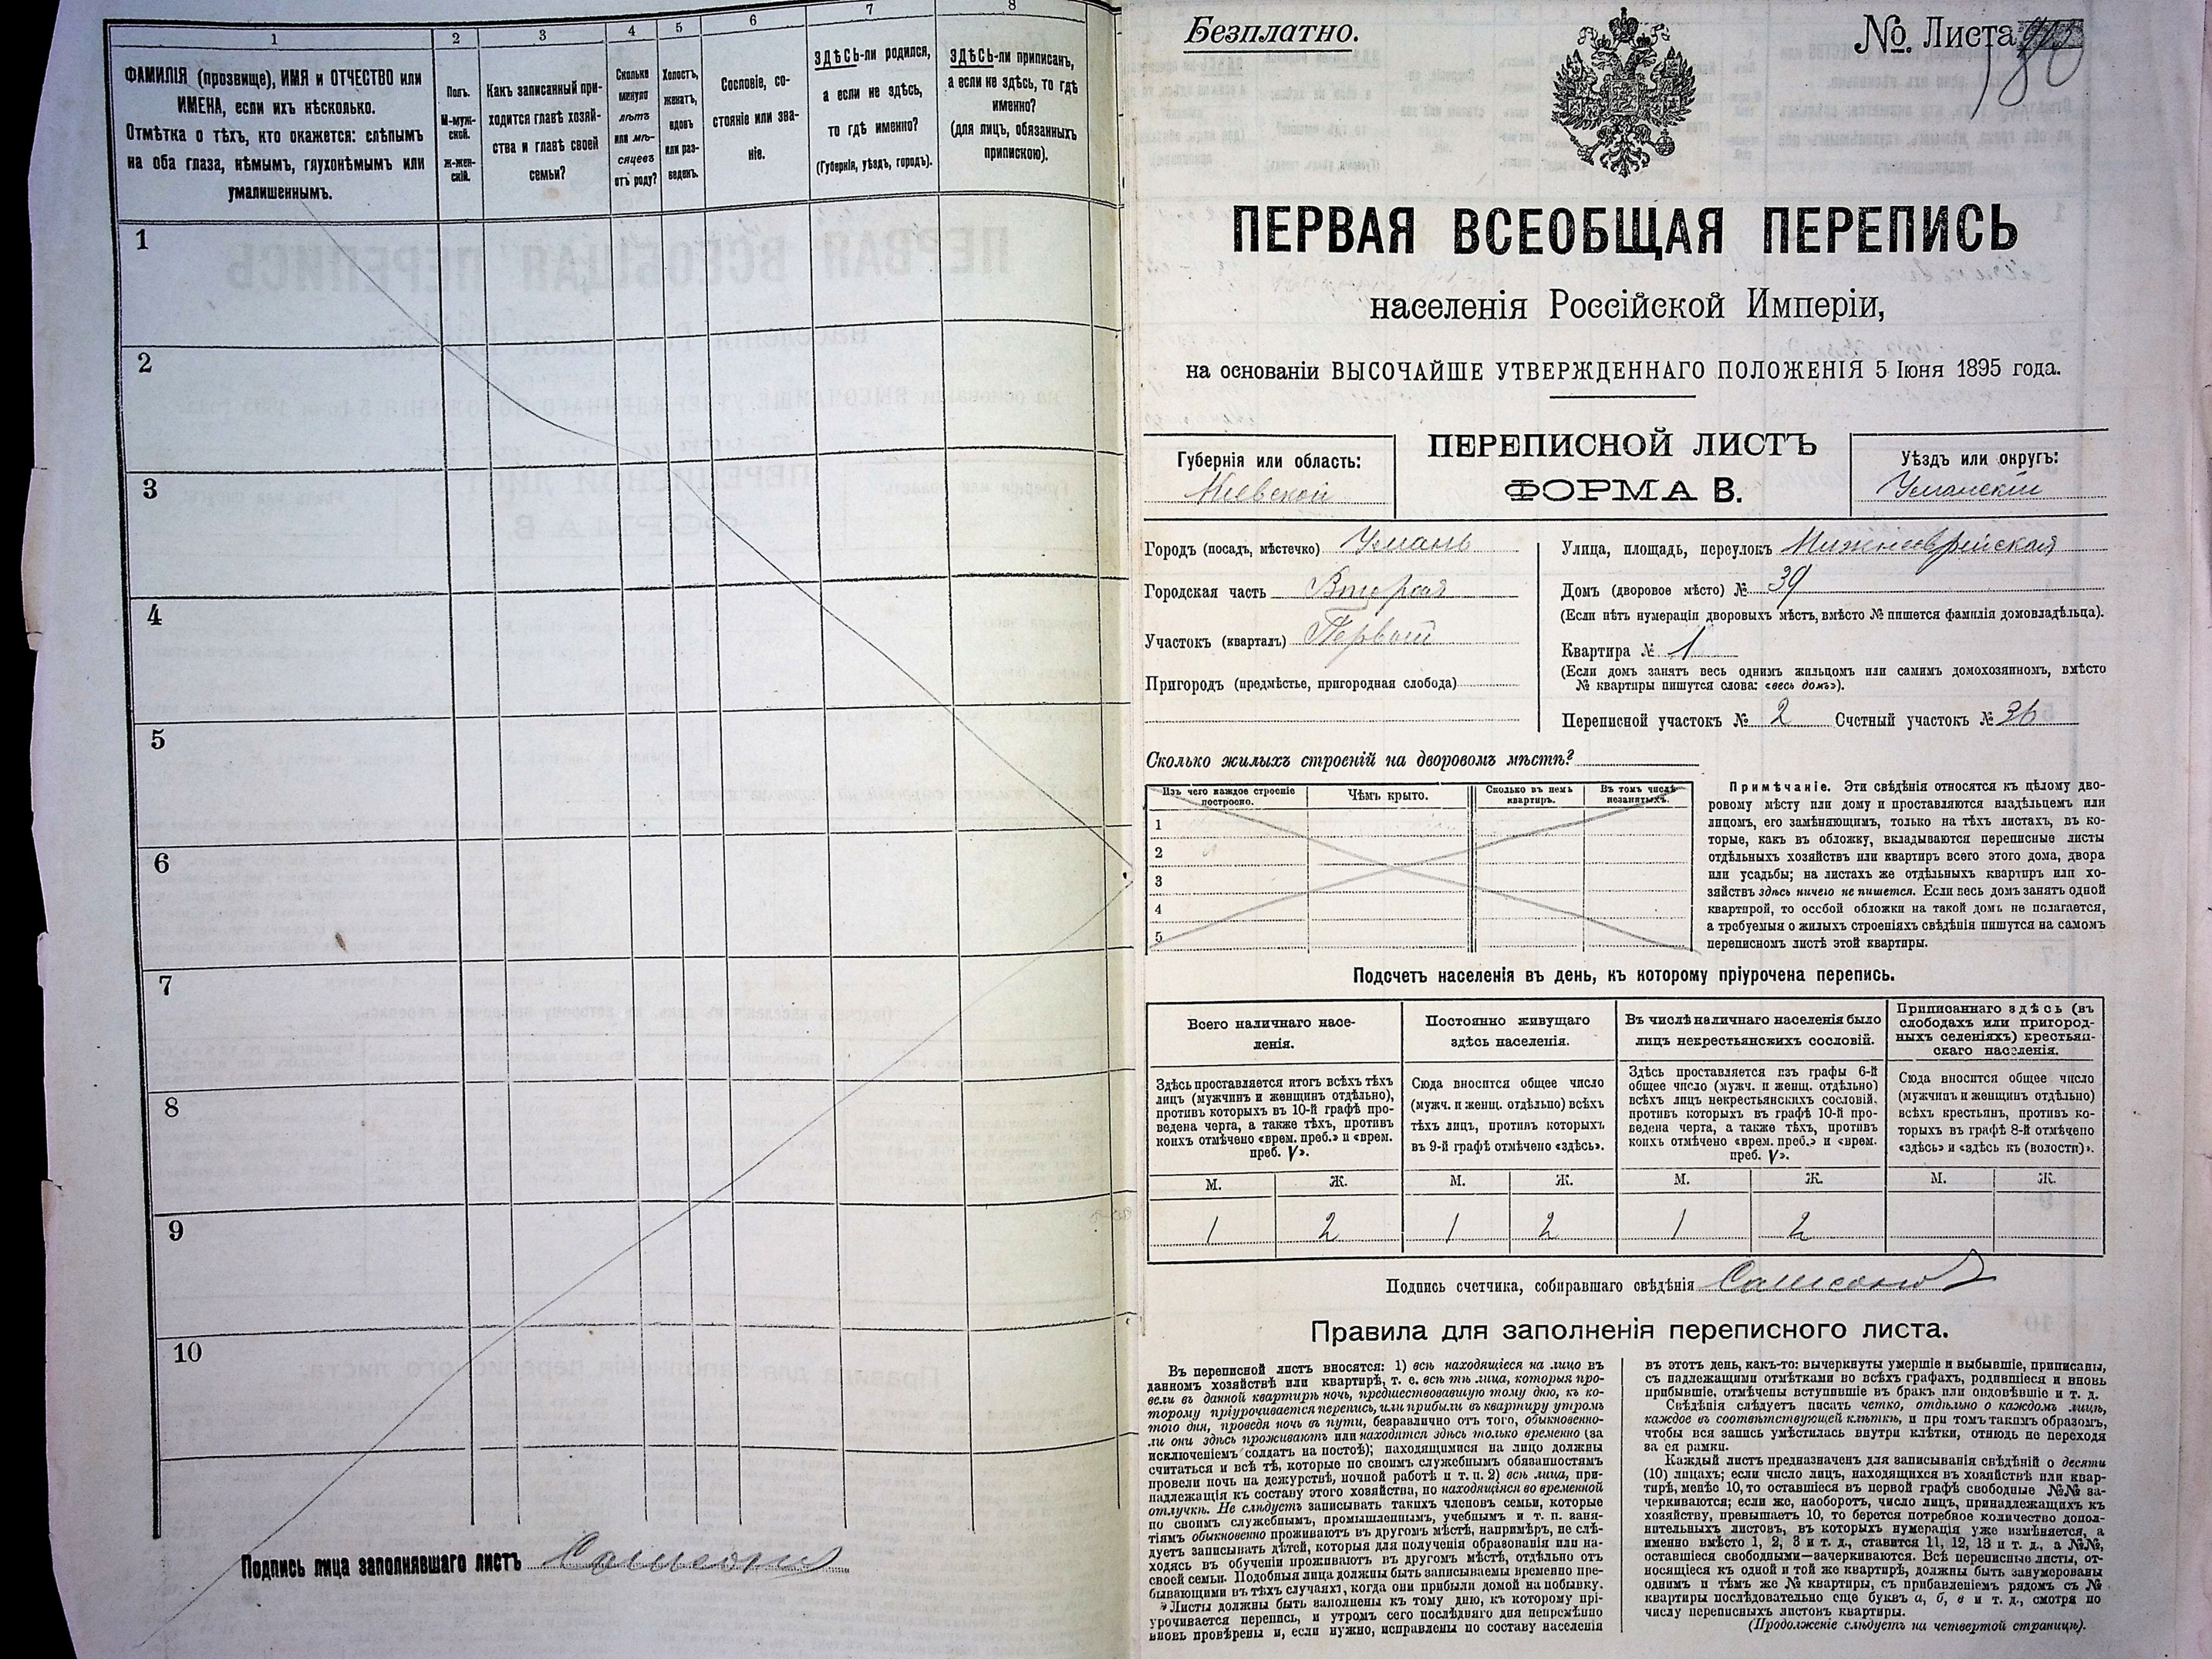 1
2
3
4
5
6
7
8
ФАМИЛІЯ (прозвище), ИМЯ и ОТЧЕСТВО или
ИМЕНА, если ихъ нѣсколько.
Отмѣтка о тѣхъ, кто окажется: слѣпымъ
на оба глаза, нѣмымъ, глухонѣмымъ или
умалишеннымъ.
Полъ.
М-муж-
ской.
ж-жен-
скій.
Какъ записанный при-
ходится главѣ хозяй-
ства и главѣ своей
семьи?
Сколько
минуло
лѣтъ
или мѣ-
сяцевъ
отъ роду?
Холостъ,
женатъ,
вдовъ
или раз-
веденъ.
Сословіе, со-
стояніе или зва-
ніе.
ЗДѢСЬ-ли родился,
а если не здѣсь,
то гдѣ именно?
(Губернія, уѣздъ, городъ).
ЗДѢСЬ-ли приписанъ,
а если не здѣсь, то гдѣ
именно?
(для лицъ, обязанныхъ
припискою).
1
2
3
4
5
6
7
8
9
10
Подпись лица заполнявшаго листъ
Безплатно.
№ Листа
ПЕРВАЯ ВСЕОБЩАЯ ПЕРЕПИСЬ
населенія Россійской Имперіи,
на основаніи ВЫСОЧАЙШЕ УТВЕРЖДЕННАГО ПОЛОЖЕНІЯ 5 Іюня 1895 года.
Губернія или область:
Кіевской
ПЕРЕПИСНОЙ ЛИСТЪ
ФОРМА В.
Уѣздъ или округъ:
Уманскій
Городъ (посадъ, мѣстечко) Умань
Городская часть Вторая
Участокъ (кварталъ) Первый
Пригородъ (предмѣстье, пригородная слобода)
Улица, площадь, переулокъ Нижнееврейская
Домъ (дворовое мѣсто) № 39
(Если нѣтъ нумераціи дворовыхъ мѣстъ, вмѣсто № пишется фамилія домовладѣльца).
Квартира № 1
(Если домъ занятъ весь однимъ жильцомъ или самимъ домохозяиномъ, вмѣсто
№ квартиры пишутся слова: «весь домъ»).
Переписной участокъ № 2 Счетный участокъ № 36
Сколько жилыхъ строеній на дворовомъ мѣстѣ?
Изъ чего каждое строеніе
построено.
Чѣмъ крыто.
Сколько въ немъ
квартиръ.
Въ томъ числѣ
незанятыхъ.
1
2
3
4
5
Примѣчаніе. Эти свѣдѣнія относятся къ цѣлому дво-
ровому мѣсту или дому и проставляются владѣльцемъ или
лицомъ, его замѣняющимъ, только на тѣхъ листахъ, въ ко-
торые, какъ въ обложку, вкладываются переписные листы
отдѣльныхъ хозяйствъ или квартиръ всего этого дома, двора
или усадьбы; на листахъ же отдѣльныхъ квартиръ или хо-
зяйствъ здѣсь ничего не пишется. Если весь домъ занятъ одной
квартирой, то особой обложки на такой домъ не полагается,
а требуемыя о жилыхъ строеніяхъ свѣдѣнія пишутся на самомъ
переписномъ листѣ этой квартиры.
Подсчетъ населенія въ день, къ которому пріурочена перепись.
Всего наличнаго насе-
ленія.
Здѣсь проставляется итогъ всѣхъ тѣхъ
лицъ (мужчинъ и женщинъ отдѣльно),
противъ которыхъ въ 10-й графѣ про-
ведена черта, а также тѣхъ, противъ
коихъ отмѣчено «врем. преб.» и «врем.
преб. V».
Постоянно живущаго
здѣсь населенія.
Сюда вносится общее число
(мужч. и женщ. отдѣльно) всѣхъ
тѣхъ лицъ, противъ которыхъ
въ 9-й графѣ отмѣчено «здѣсь».
Въ числѣ наличнаго населенія было
лицъ некрестьянскихъ сословій.
Здѣсь проставляется изъ графы 6-й
общее число (мужч. и женщ. отдѣльно)
всѣхъ лицъ некрестьянскихъ сословій,
противъ которыхъ въ графѣ 10-й про-
ведена черта, а также тѣхъ, противъ
коихъ отмѣчено «врем. преб.» и «врем.
преб. V».
Приписаннаго здѣсь (въ
слободахъ или пригород-
ныхъ селеніяхъ) крестьян-
скаго населенія.
Сюда вносится общее число
(мужчинъ и женщинъ отдѣльно)
всѣхъ крестьянъ, противъ ко-
торыхъ въ графѣ 8-й отмѣчено
«здѣсь» и «здѣсь къ (волости)».
М. Ж. М. Ж. М. Ж. М. Ж.
1 2 1 2 1 2
Подпись счетчика, собиравшаго свѣдѣнія
Правила для заполненія переписного листа.
Въ переписной листъ вносятся: 1) всѣ находящіеся на лицо въ
данномъ хозяйствѣ или квартирѣ, т. е. всѣ тѣ лица, которыя про-
вели въ данной квартирѣ ночь, предшествовавшую тому дню, къ ко-
торому пріурочивается перепись, или прибыли въ квартиру утромъ
того дня, проведя ночь въ пути, безразлично отъ того, обыкновенно-
ли они здѣсь проживаютъ или находятся здѣсь только временно (за
исключеніемъ солдатъ на постоѣ); находящимися на лицо должны
считаться и всѣ тѣ, которые по своимъ служебнымъ обязанностямъ
провели ночь на дежурствѣ, ночной работѣ и т. п. 2) всѣ лица, при-
надлежащія къ составу этого хозяйства, но находящіяся во временной
отлучкѣ. Не слѣдуетъ записывать такихъ членовъ семьи, которые
по своимъ служебнымъ, промышленнымъ, учебнымъ и т. п. заня-
тіямъ обыкновенно проживаютъ въ другомъ мѣстѣ, напримѣръ, не слѣ-
дуетъ записывать дѣтей, которыя для полученія образованія или на-
ходясь въ обученіи проживаютъ въ другомъ мѣстѣ, отдѣльно отъ
своей семьи. Подобныя лица должны быть записываемы временно пре-
бывающими въ тѣхъ случаяхъ, когда они прибыли домой на побывку.
Листы должны быть заполнены къ тому дню, къ которому прі-
урочивается перепись, и утромъ сего послѣдняго дня непремѣнно
вновь провѣрены и, если нужно, исправлены по составу населенія
въ этотъ день, какъ-то: вычеркнуты умершіе и выбывшіе, приписаны,
съ надлежащими отмѣтками во всѣхъ графахъ, родившіеся и вновь
прибывшіе, отмѣчены вступившіе въ бракъ или овдовѣвшіе и т. д.
Свѣдѣнія слѣдуетъ писать четко, отдѣльно о каждомъ лицѣ,
каждое въ соотвѣтствующей клѣткѣ, и при томъ такимъ образомъ,
чтобы вся запись умѣстилась внутри клѣтки, отнюдь не переходя
за ея рамки.
Каждый листъ предназначенъ для записыванія свѣдѣній о десяти
(10) лицахъ; если число лицъ, находящихся въ хозяйствѣ или квар-
тирѣ, менѣе 10, то оставшіеся въ первой графѣ свободные №№ за-
черкиваются; если же, наоборотъ, число лицъ, принадлежащихъ къ
хозяйству, превышаетъ 10, то берется потребное количество допол-
нительныхъ листовъ, въ которыхъ нумерація уже измѣняется, а
именно вмѣсто 1, 2, 3 и т. д., ставится 11, 12, 13 и т. д., а №№,
оставшіеся свободными—зачеркиваются. Всѣ переписные листы, от-
носящіеся къ одной и той же квартирѣ, должны быть занумерованы
однимъ и тѣмъ же № квартиры, съ прибавленіемъ рядомъ съ №
квартиры послѣдовательно еще буквъ а, б, в и т. д., смотря по
числу переписныхъ листовъ квартиры.
(Продолженіе слѣдуетъ на четвертой страницѣ).